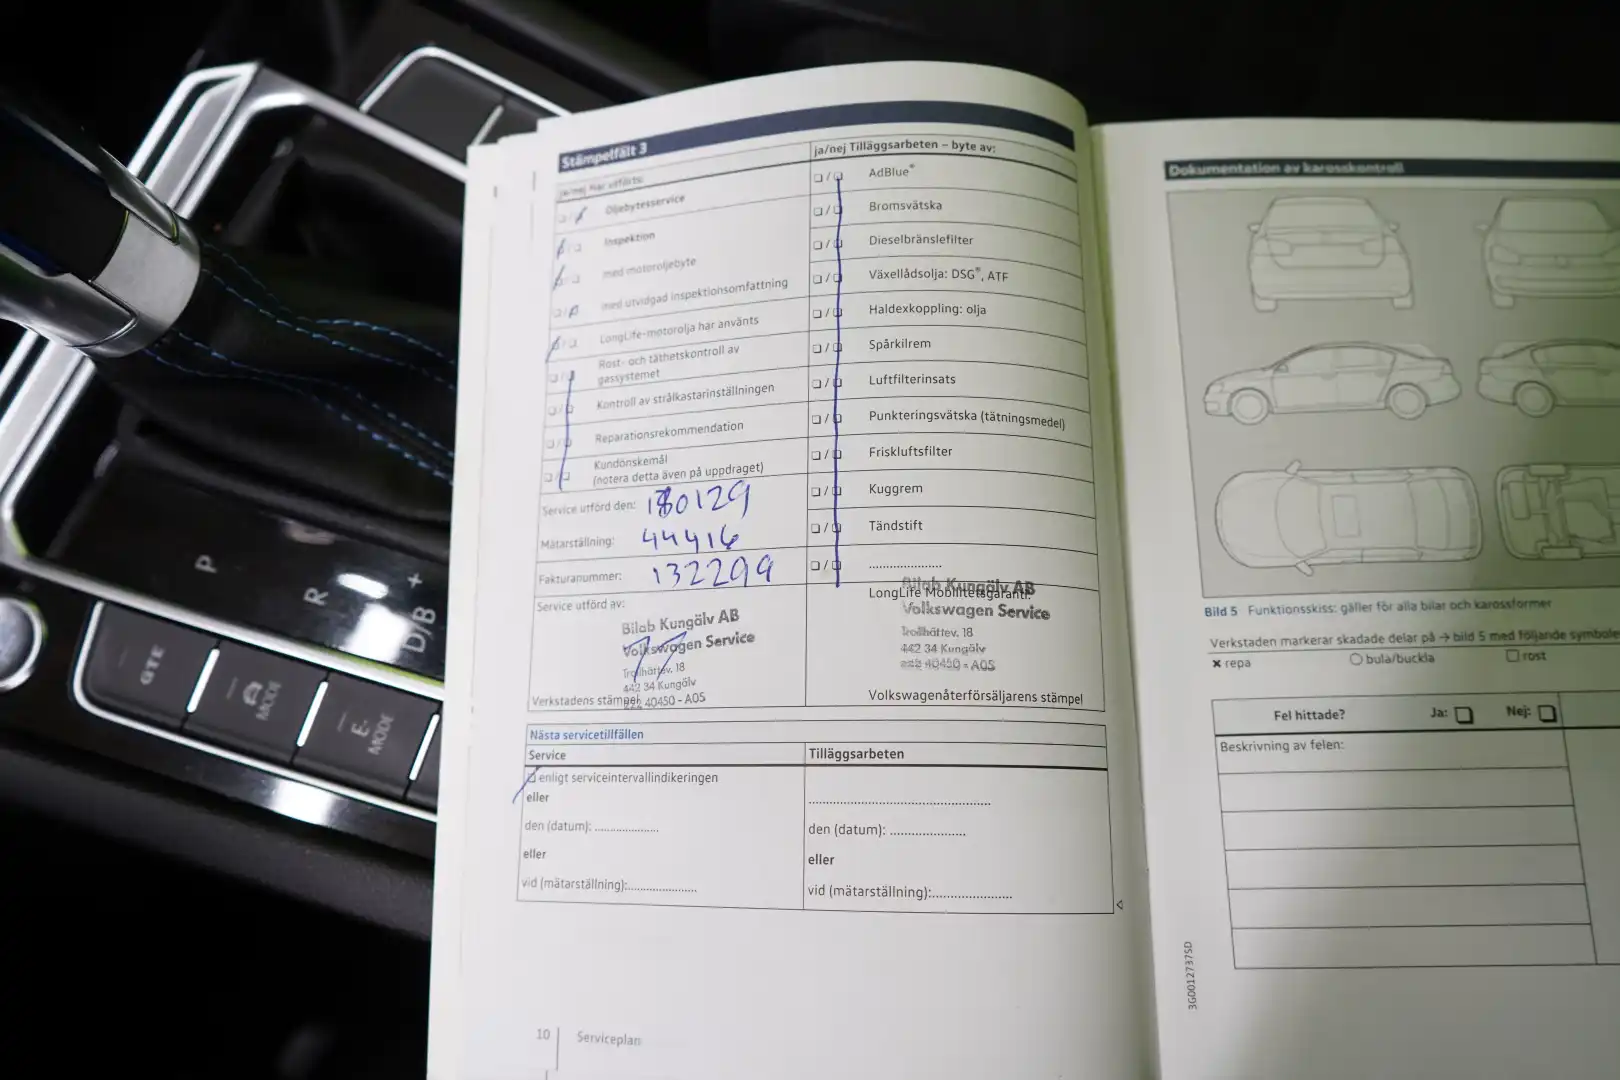 Stämpelfält 3
ja/nej Har utförts:
Oljebytesservice
Inspektion
med motoroljebyte
med utvidgad inspektionsomfattning
LongLife-motorolja har använts
Rost- och täthetskontroll av
gassystemet
Kontroll av strålkastarinställningen
Reparationsrekommendation
Kundönskemål
(notera detta även på uppdraget)
Service utförd den: 180129
Mätarställning: 44416
Fakturanummer: 132299
Service utförd av:
Bilab Kungälv AB
Volkswagen Service
Trollhättev. 18
442 34 Kungälv
40450 - A05
Verkstadens stämpel
ja/nej Tilläggsarbeten – byte av:
AdBlue®
Bromsvätska
Dieselbränslefilter
Växellådsolja: DSG®, ATF
Haldexkoppling: olja
Spårkilrem
Luftfilterinsats
Punkteringsvätska (tätningsmedel)
Friskluftsfilter
Kuggrem
Tändstift
....................
Bilab Kungälv AB
LongLife Mobilitetsgaranti:
Volkswagen Service
Trollhättev. 18
442 34 Kungälv
40450 - A05
Volkswagenåterförsäljarens stämpel
Nästa servicetillfällen
Service
enligt serviceintervallindikeringen
eller
den (datum): ..................
eller
vid (mätarställning):...................
Tilläggsarbeten
..................................................
den (datum): .....................
eller
vid (mätarställning):......................
10 Serviceplan
Dokumentation av karosskontroll
Bild 5 Funktionsskiss: gäller för alla bilar och karossformer
Verkstaden markerar skadade delar på → bild 5 med följande symbole
× repa ○ bula/buckla □ rost
Fel hittade? Ja: Nej:
Beskrivning av felen:
3G0012737SD
P
R
D/B
+
GTE
MODE
E-
MODE